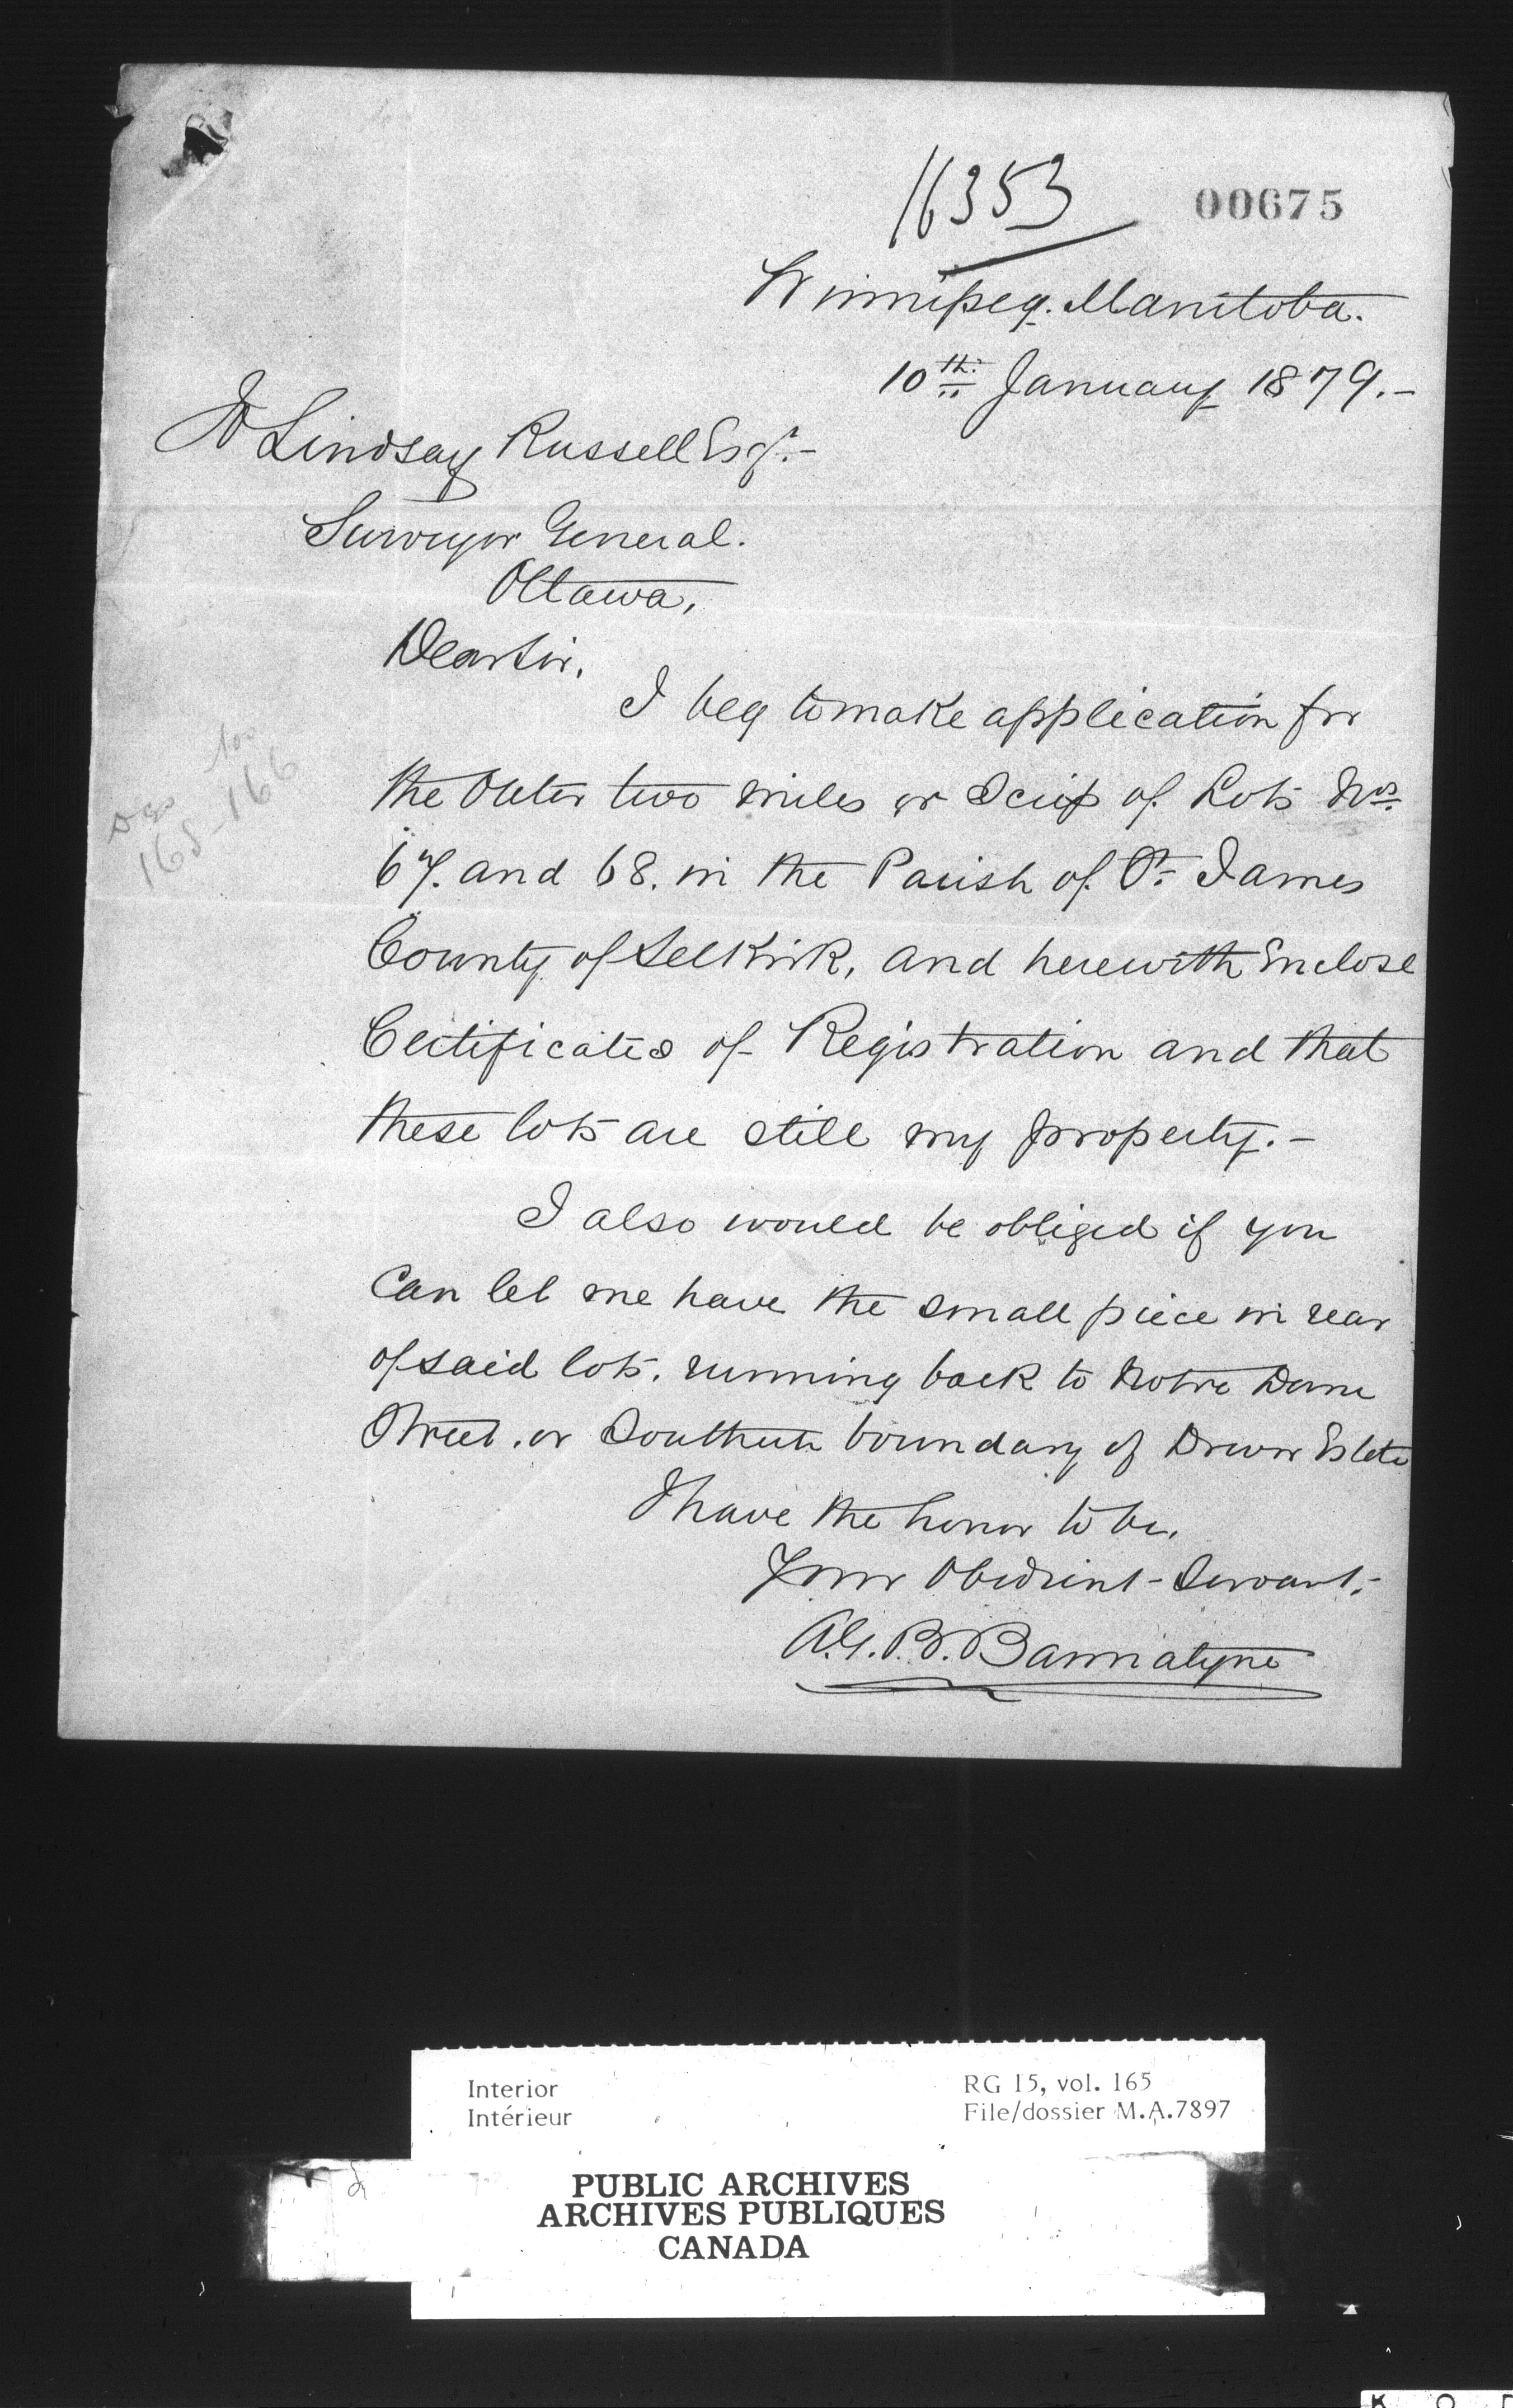 16353
00675
Winnipeg. Manitoba.
10th January 1879.-
Lindsay Russell Esqr.-
Surveyor General.
Ottawa,
Dear Sir,
I beg to make application for
the Outer two miles or Scrip of Lots Nos.
67. and 68. in the Parish of St. James
County of Selkirk, and herewith Enclose
Certificates of Registration and that
these lots are still my property.-
I also would be obliged if you
Can let me have the small piece in rear
of said lots, running back to Notre Dame
Street, or Southern boundary of Drever Estate
I have the honor to be,
Your Obedient Servant,-
A.G.B. Bannatyne
165-166
Interior
Intérieur
RG 15, vol. 165
File/dossier M.A.7897
PUBLIC ARCHIVES
ARCHIVES PUBLIQUES
CANADA